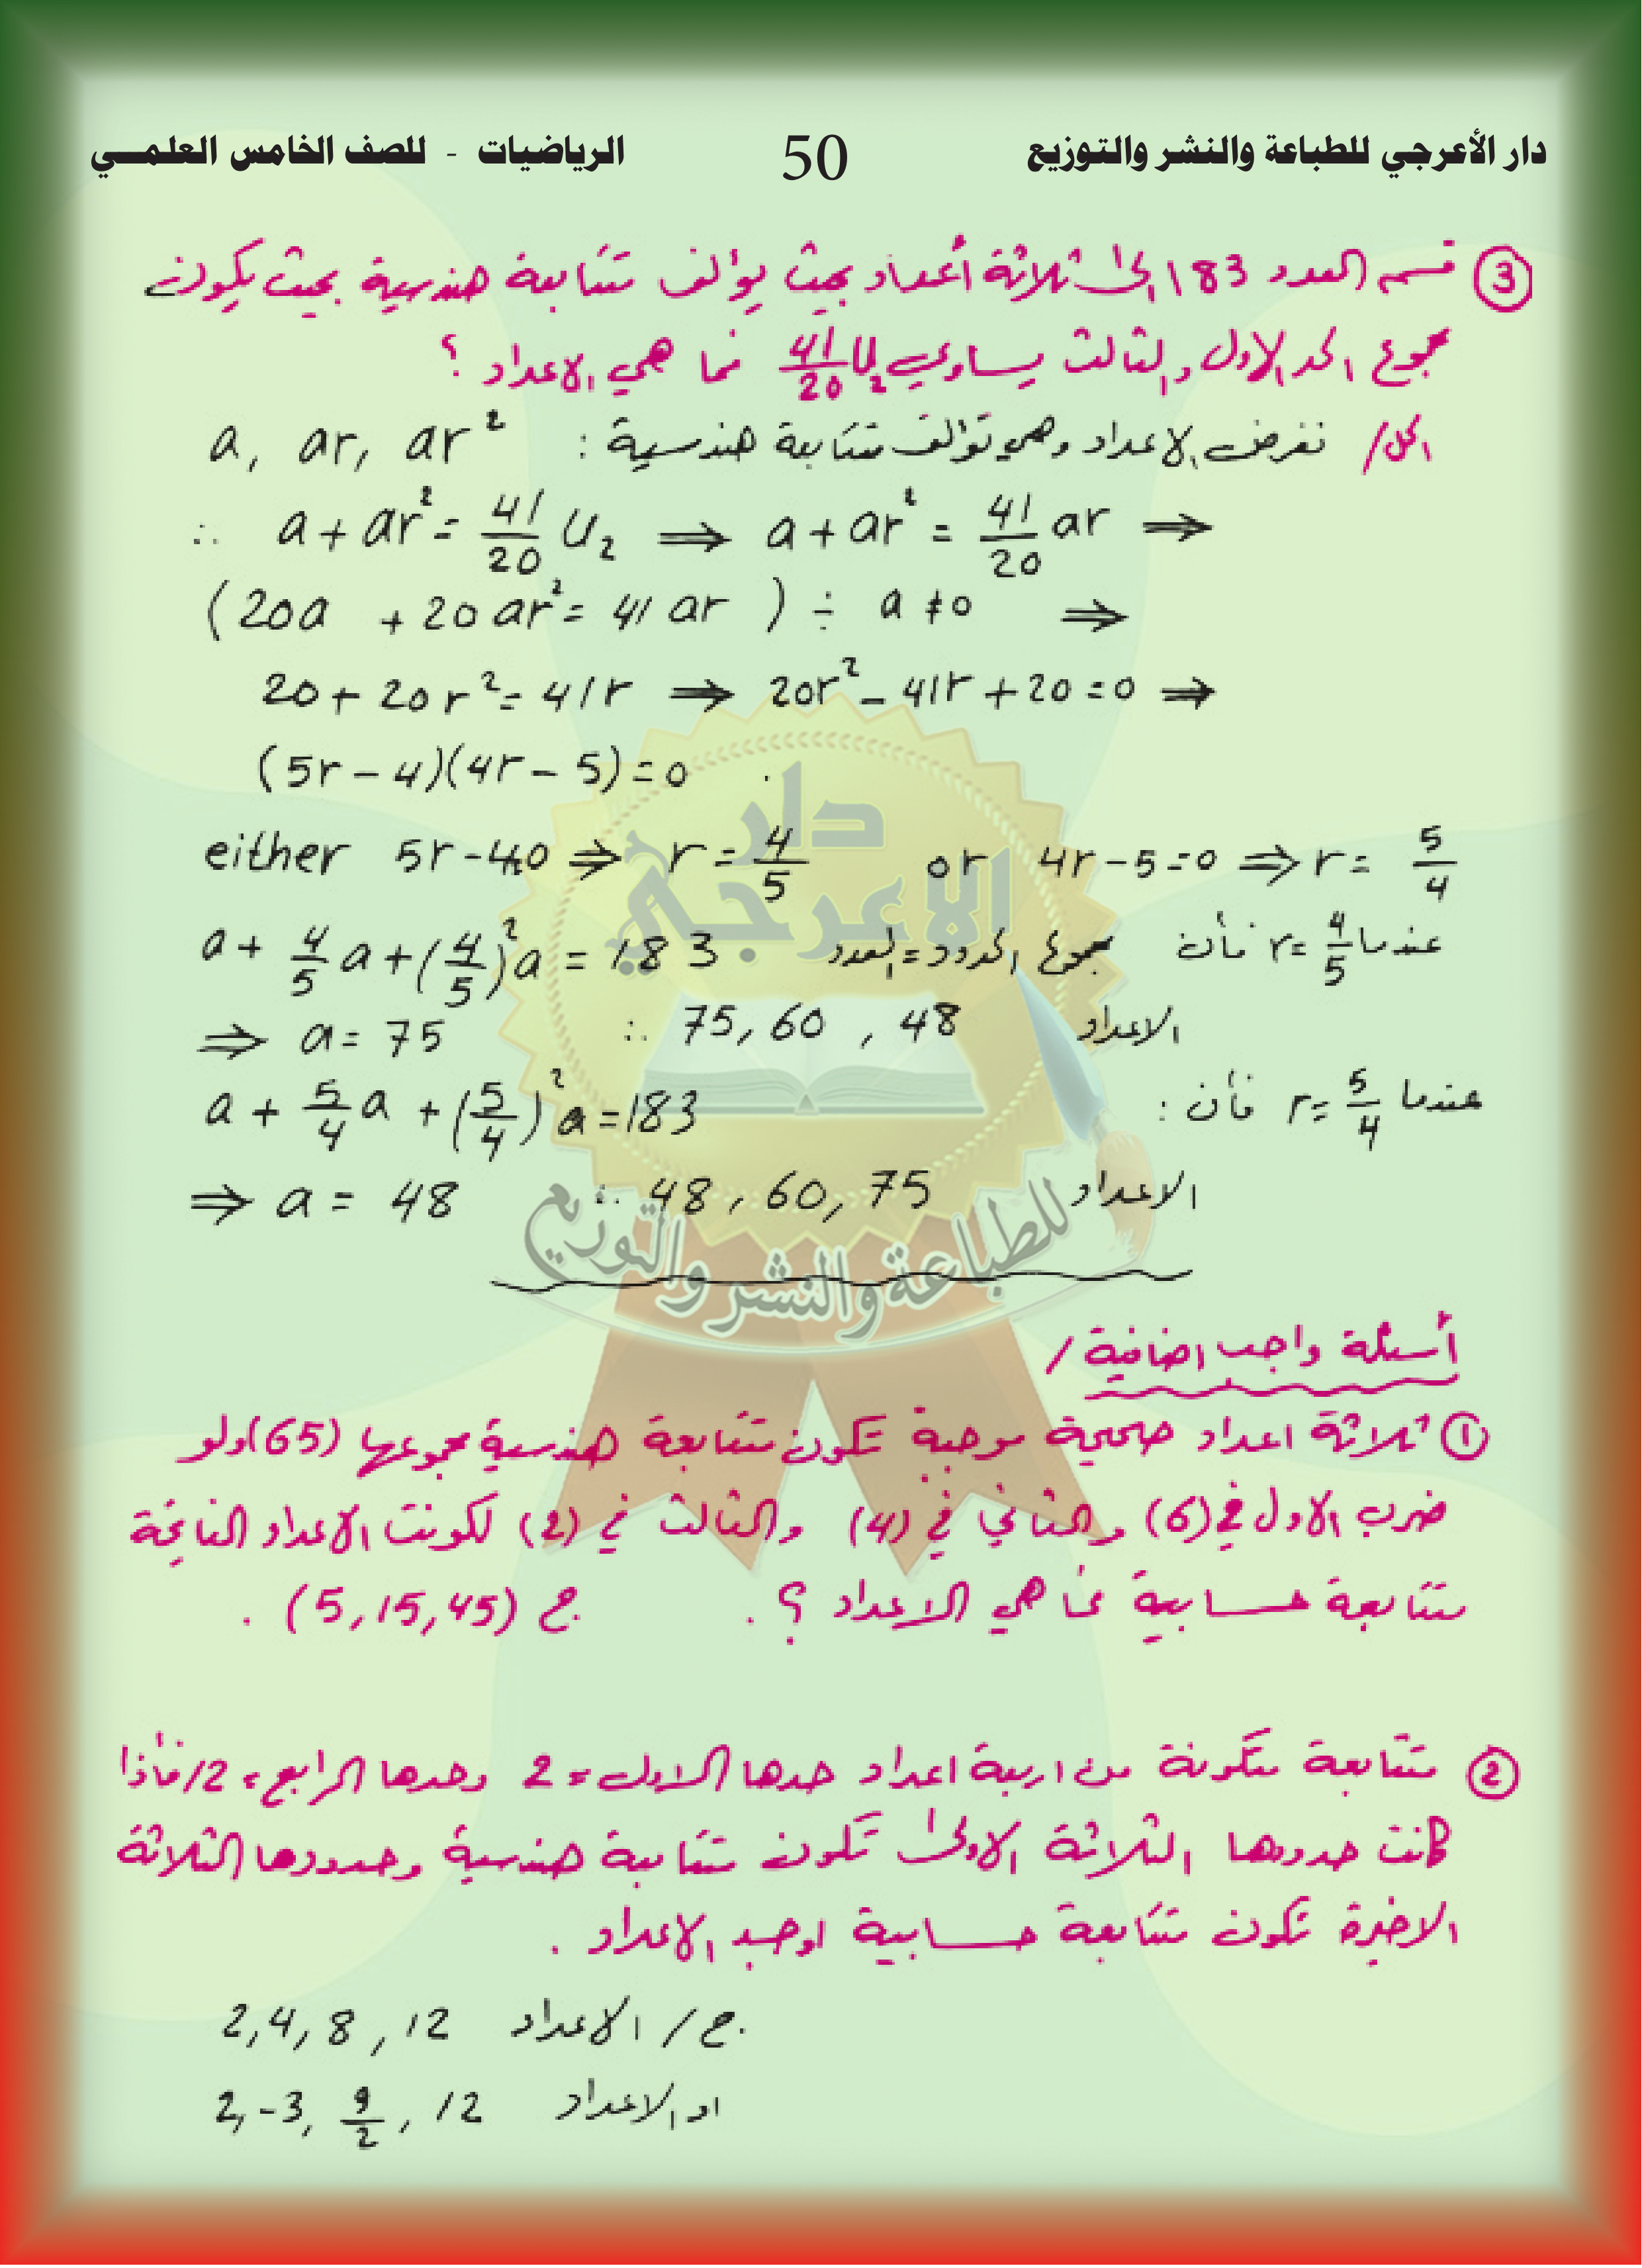 دار الأعرجي للطباعة والنشر والتوزيع 50 الرياضيات - للصف الخامس العلمي
③ قسم العدد 183 الى ثلاثة أعداد بحيث يؤلف متتابعة هندسية بحيث يكون
مجموع الحد الاول والثالث يساوي 41/20 U₂ فما هي الاعداد ؟
الحل/ نفرض الاعداد وهي تؤلف متتابعة هندسية : a, ar, ar²
∴ a + ar² = 41/20 U₂ ⇒ a + ar² = 41/20 ar ⇒
(20a + 20ar² = 41 ar) ÷ a ≠ 0 ⇒
20 + 20r² = 41r ⇒ 20r² - 41r + 20 = 0 ⇒
(5r - 4)(4r - 5) = 0
either 5r - 4=0 ⇒ r = 4/5 or 4r - 5 = 0 ⇒ r = 5/4
عندما r = 4/5 فأن مجموع الحدود = العدد a + 4/5 a + (4/5)² a = 183
⇒ a = 75 ∴ 75, 60, 48 الاعداد
عندما r = 5/4 فأن : a + 5/4 a + (5/4)² a = 183
⇒ a = 48 ∴ 48, 60, 75 الاعداد
دار
الاعرجي
للطباعة والنشر والتوزيع
أسئلة واجب اضافية /
① ثلاثة اعداد صحيحة موجبة تكون متتابعة هندسية مجموعها (65) ولو
ضرب الاول في (6) والثاني في (4) والثالث في (2) لكونت الاعداد الناتجة
متتابعة حسابية فما هي الاعداد ؟ . ج (5, 15, 45) .
② متتابعة متكونة من اربعة اعداد حدها الاول = 2 وحدها الرابع = 12 فأذا
كانت حدودها الثلاثة الاولى تكون متتابعة هندسية وحدودها الثلاثة
الاخيرة تكون متتابعة حسابية اوجد الاعداد .
ج / الاعداد 2, 4, 8, 12
او الاعداد 2, -3, 9/2, 12